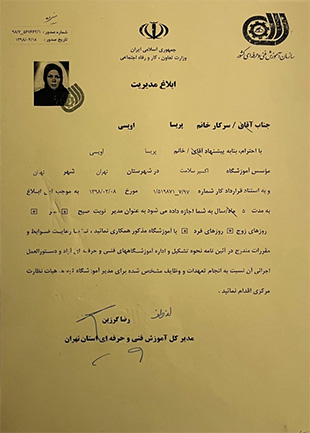 جمهوری اسلامی ایران
وزارت تعاون، کار و رفاه اجتماعی
سازمان آموزش فنی و حرفه‌ای کشور
تاریخ صدور : ۱۳۹۸/۰۲/۱۸
ابلاغ مدیریت
جناب آقای / سرکار خانم پریسا اویسی
با احترام، بنابه پیشنهاد آقای / خانم پریسا اویسی
موسس آموزشگاه اکسیر سلامت در شهرستان تهران شهر تهران
و به استناد قرارداد کار شماره ۱/۵۱۹۸۷۱_۷/۹۷ مورخ ۱۳۹۸/۰۲/۰۸ به موجب این ابلاغ
به مدت ۵ سال به شما اجازه داده می شود به عنوان مدیر نوبت صبح عصر
روزهای زوج روزهای فرد با آموزشگاه مذکور همکاری نمائید، ضمنا رعایت ضوابط و
مقررات مندرج در آئین نامه نحوه تشکیل و اداره آموزشگاههای فنی و حرفه ای آزاد و دستورالعمل
اجرائی آن نسبت به انجام تعهدات و وظایف مشخص شده برای مدیر آموزشگاه توسط هیات نظارت
مرکزی اقدام نمائید .
رضا کرزین
مدیر کل آموزش فنی و حرفه ای استان تهران